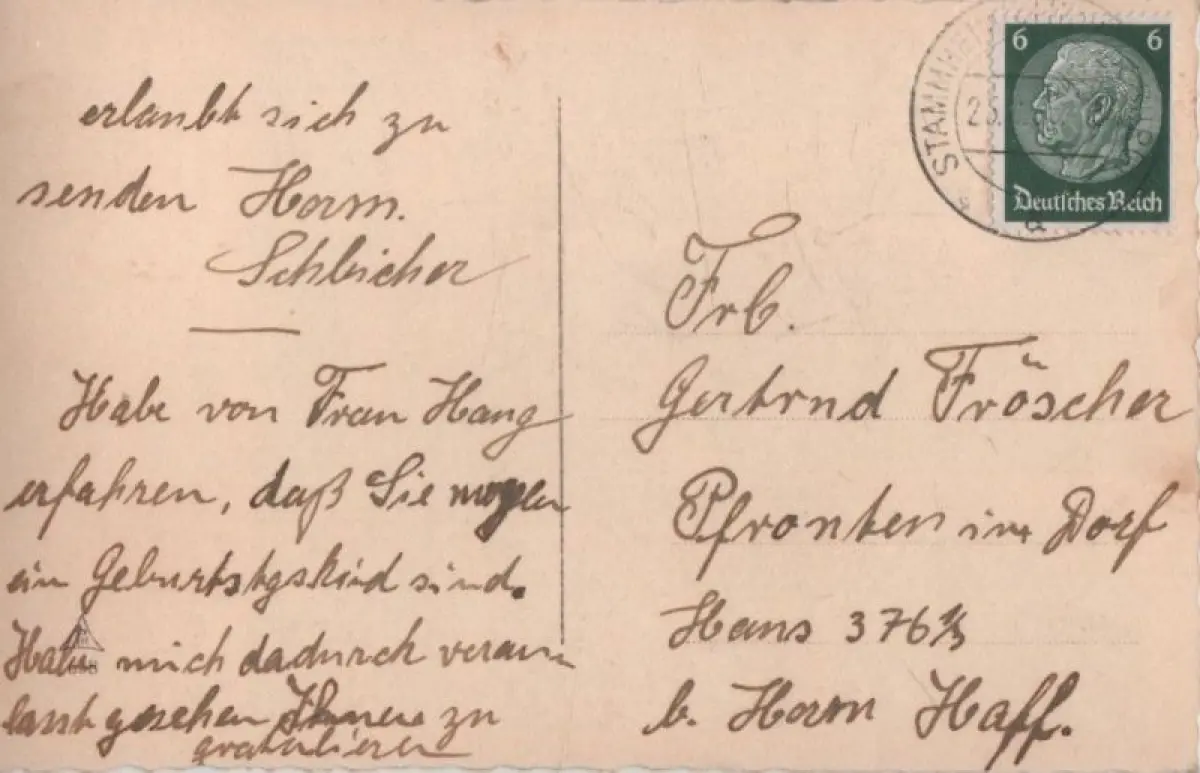 erlaubt sich zu
senden Herm.
Schleicher
Habe von Frau Haug
erfahren, daß Sie morgen
ein Geburtstgskind sind.
Habe mich dadurch veran-
lasst gesehen Ihnen zu
gratulieren
6 6
STAMMHEI
23.
Deutsches Reich
a
Frl.
Gertrud Fröscher
Pfronten im Dorf
Haus 376 1/3
b. Herrn Haff.